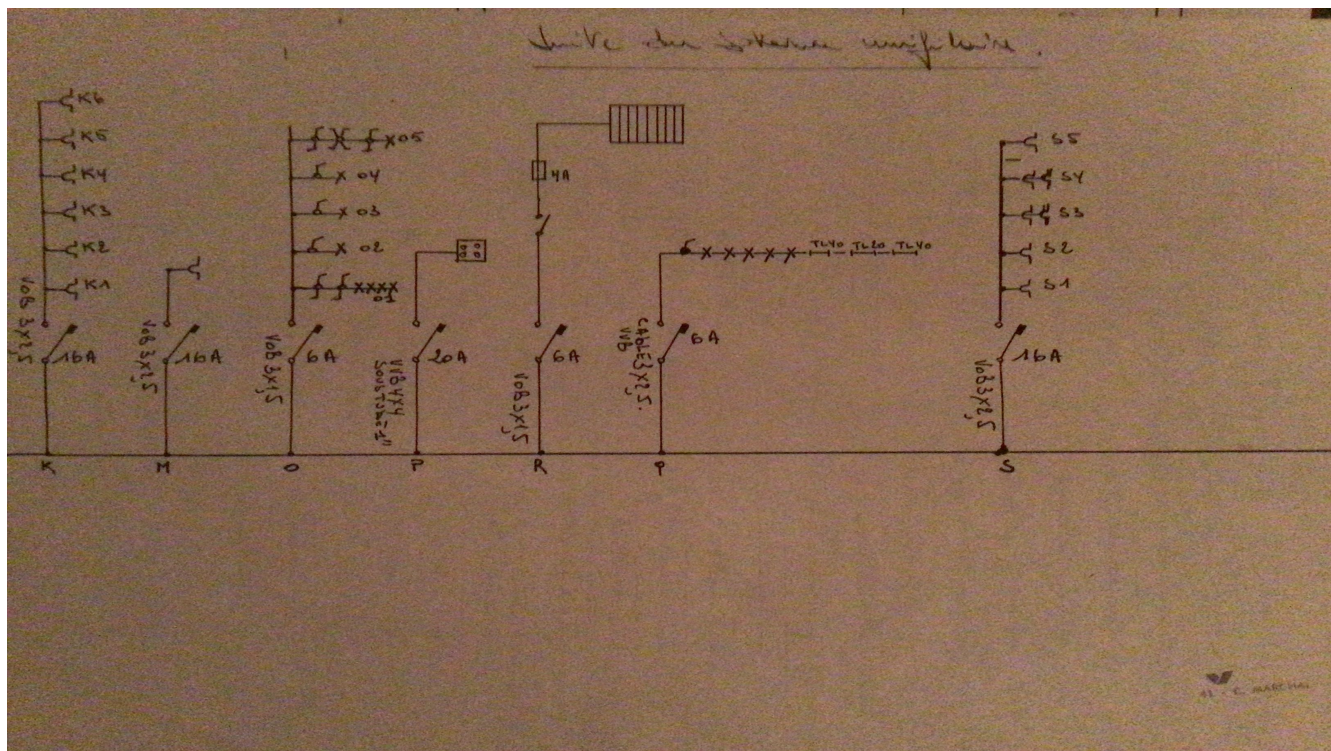 Suite du schéma unifilaire.
K6
K5
K4
K3
K2
K1
VOB 3x2,5
16A
K
VOB 3x2,5
16A
M
05
04
03
02
01
VOB 3x1,5
6A
O
VVB 4x4
SOUS TUBE 1"
20A
P
4A
6A
VOB 3x1,5
R
TL40 TL20 TL40
CABLE 3x2,5.
VVB
6A
S5
S4
S3
S2
S1
16A
VOB 3x2,5
S